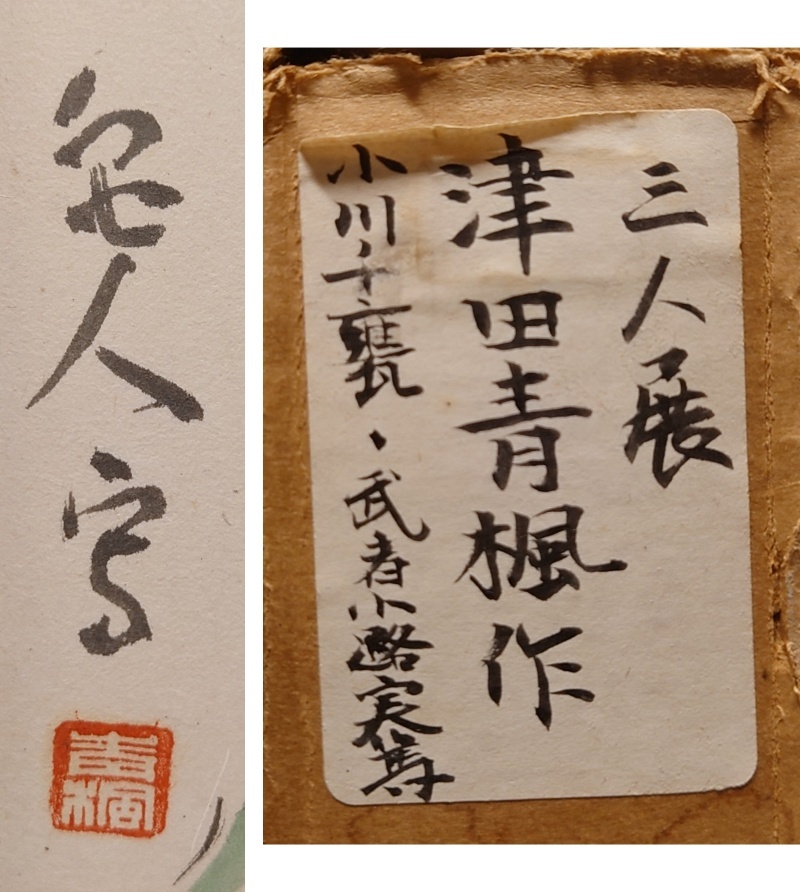 亀人写
青楓
三人展
津田青楓作
小川千甕・武者小路実篤